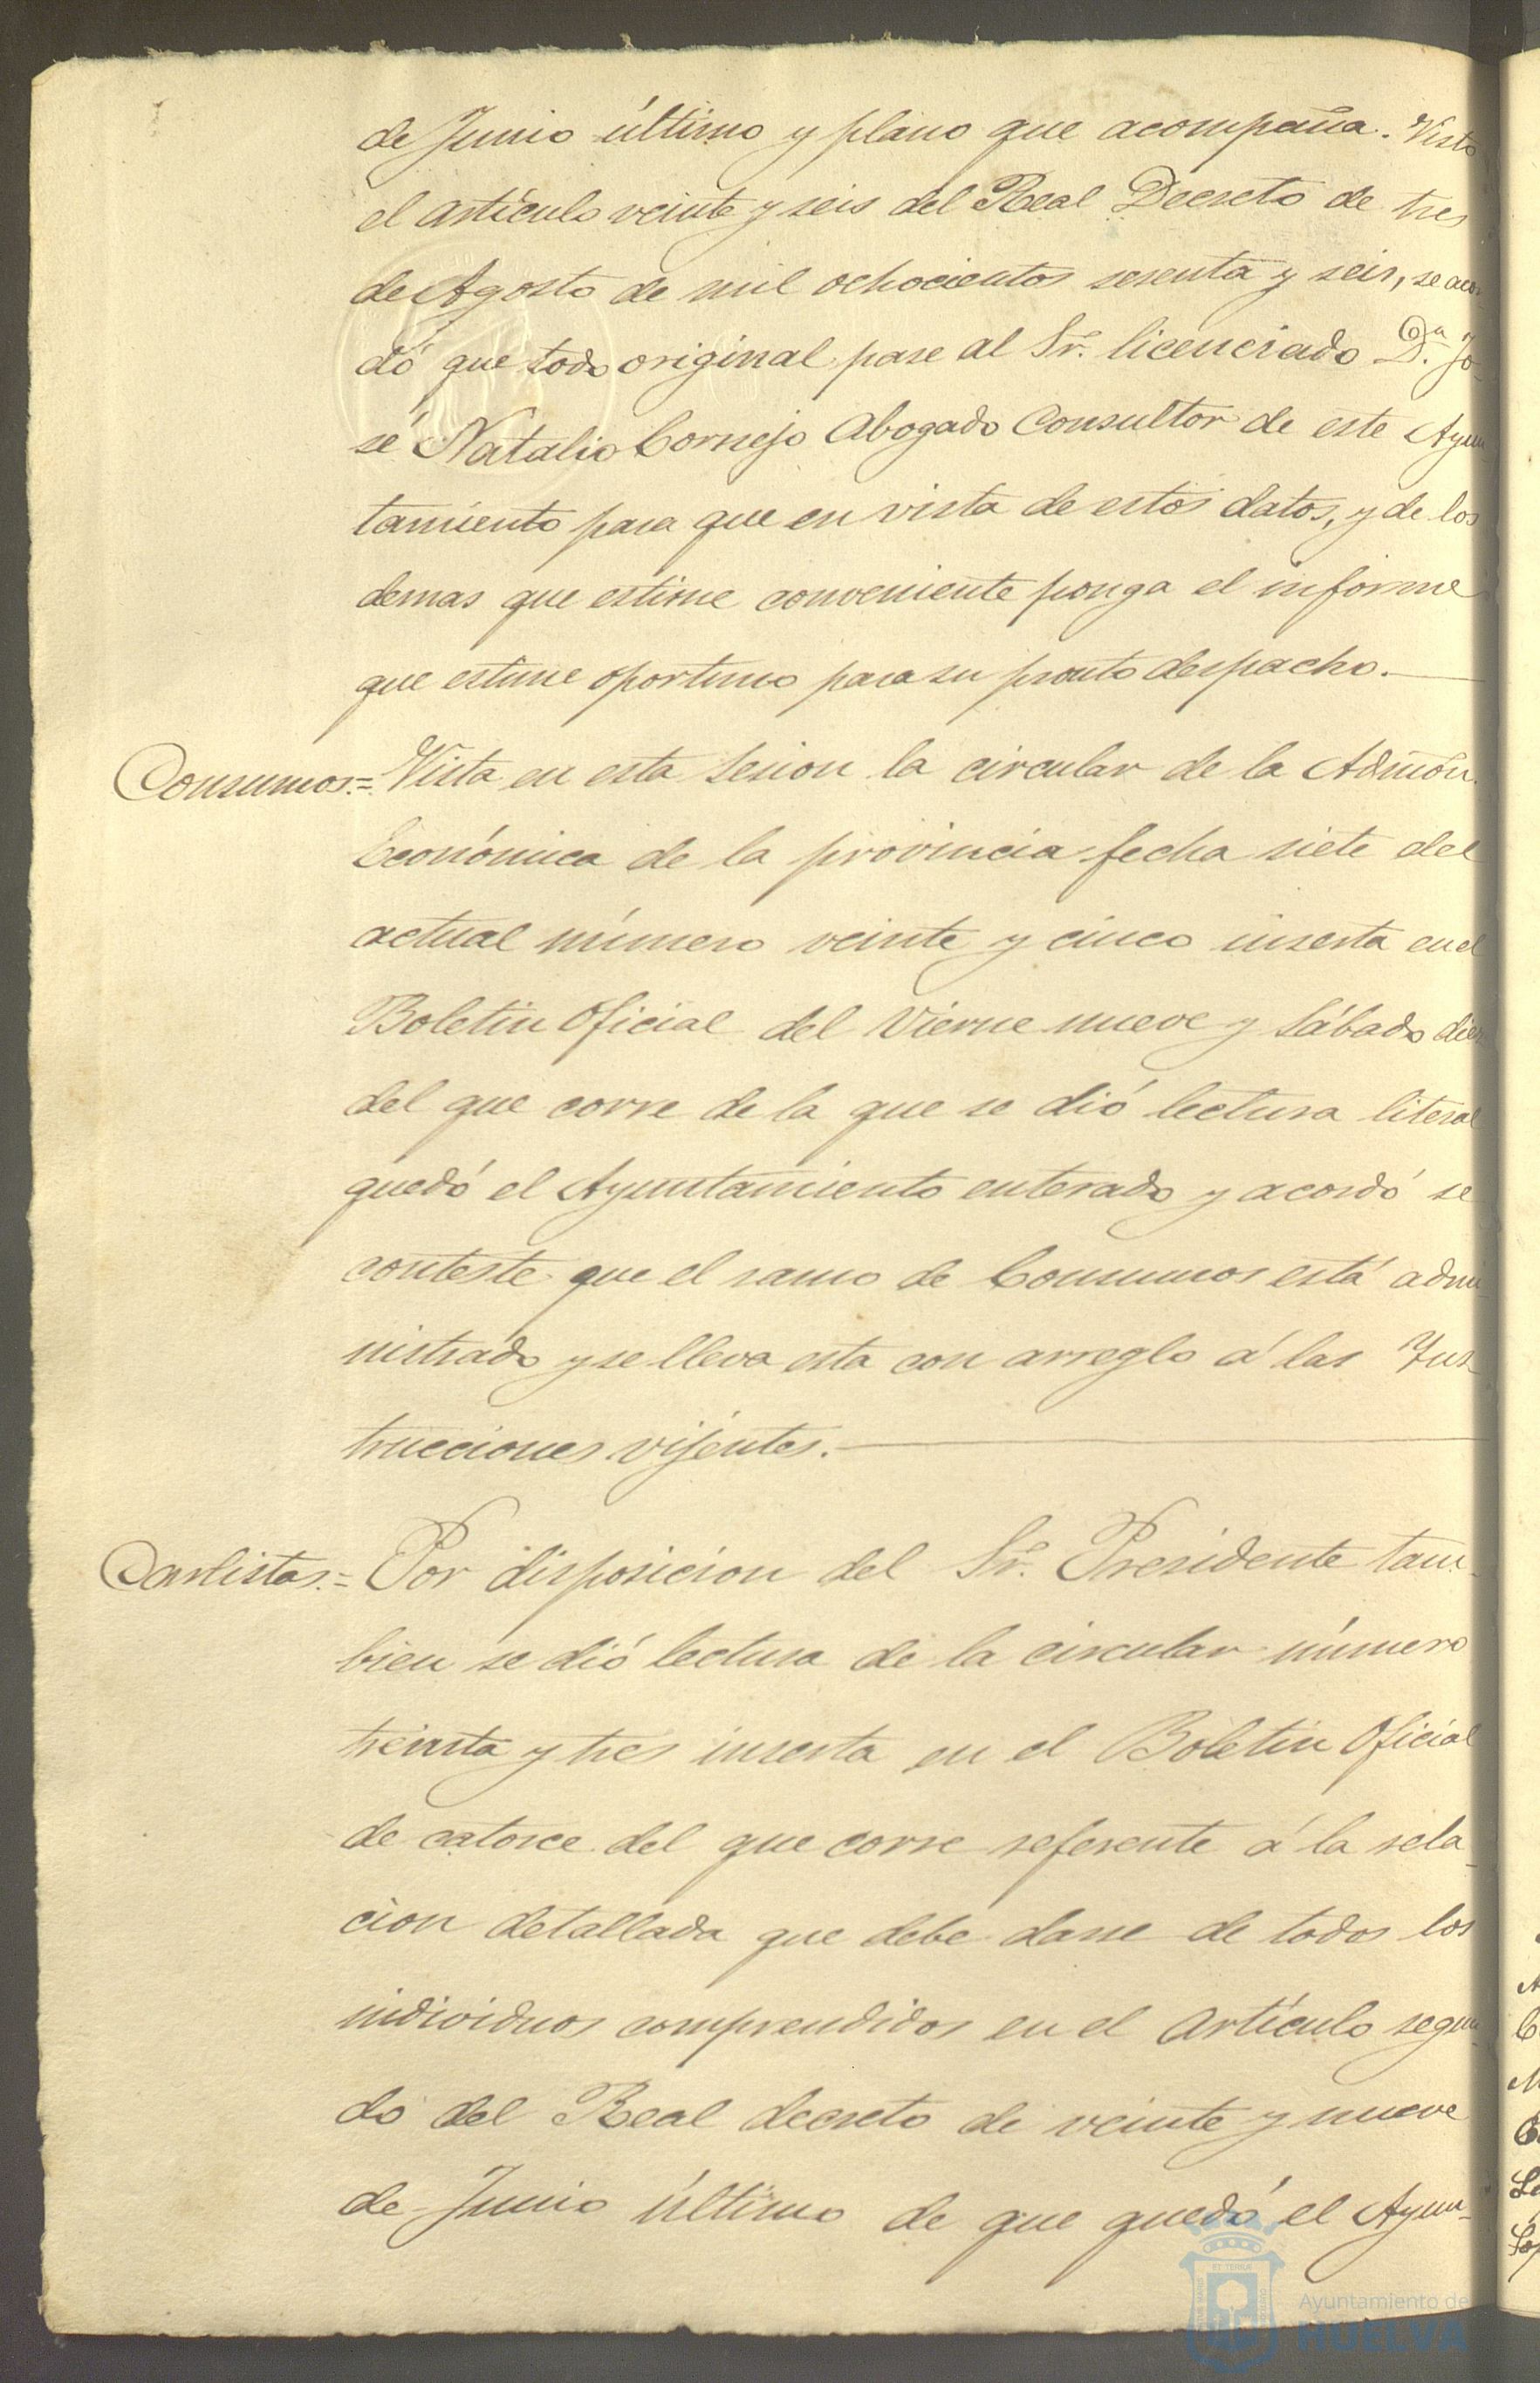 de Junio último y plano que acompaña. Visto
el artículo veinte y seis del Real Decreto de tres
de Agosto de mil ochocientos sesenta y seis, se acor
dó que todo original pase al Sr. licenciado D.n Jo-
sé Natalio Cornejo Abogado Consultor de este Ayun
tamiento para que en vista de estos datos, y de los
demas que estime conveniente ponga el informe
que estime oportuno para su pronto despacho.
Consumos.= Vista en esta sesion la circular de la Admón.
Económica de la provincia fecha siete del
actual número veinte y cinco inserta en el
Boletin Oficial del Vierne nueve y Sábado diez
del que corre de la que se dió lectura literal
quedó el Ayuntamiento enterado y acordó se
conteste que el ramo de Consumos está admi
nistrado y se lleva esta con arreglo á las Ins
trucciones vijentes.
Carlistas.= Por disposicion del Sr. Presidente tam-
bien se dió lectura de la circular número
treinta y tres inserta en el Boletin Oficial
de catorce del que corre referente á la rela-
cion detallada que debe darse de todos los
individuos comprendidos en el artículo segun
do del Real decreto de veinte y nueve
de Junio último de que quedó el Ayun-
Ayuntamiento de
HUELVA